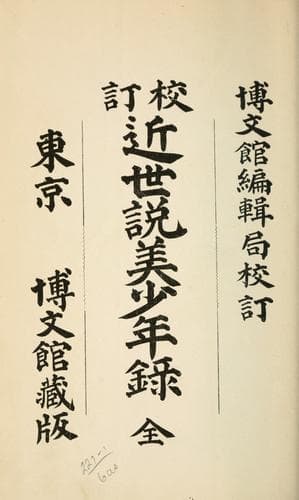 博文館編輯局校訂
校訂
近世説美少年録 全
東京 博文館藏版